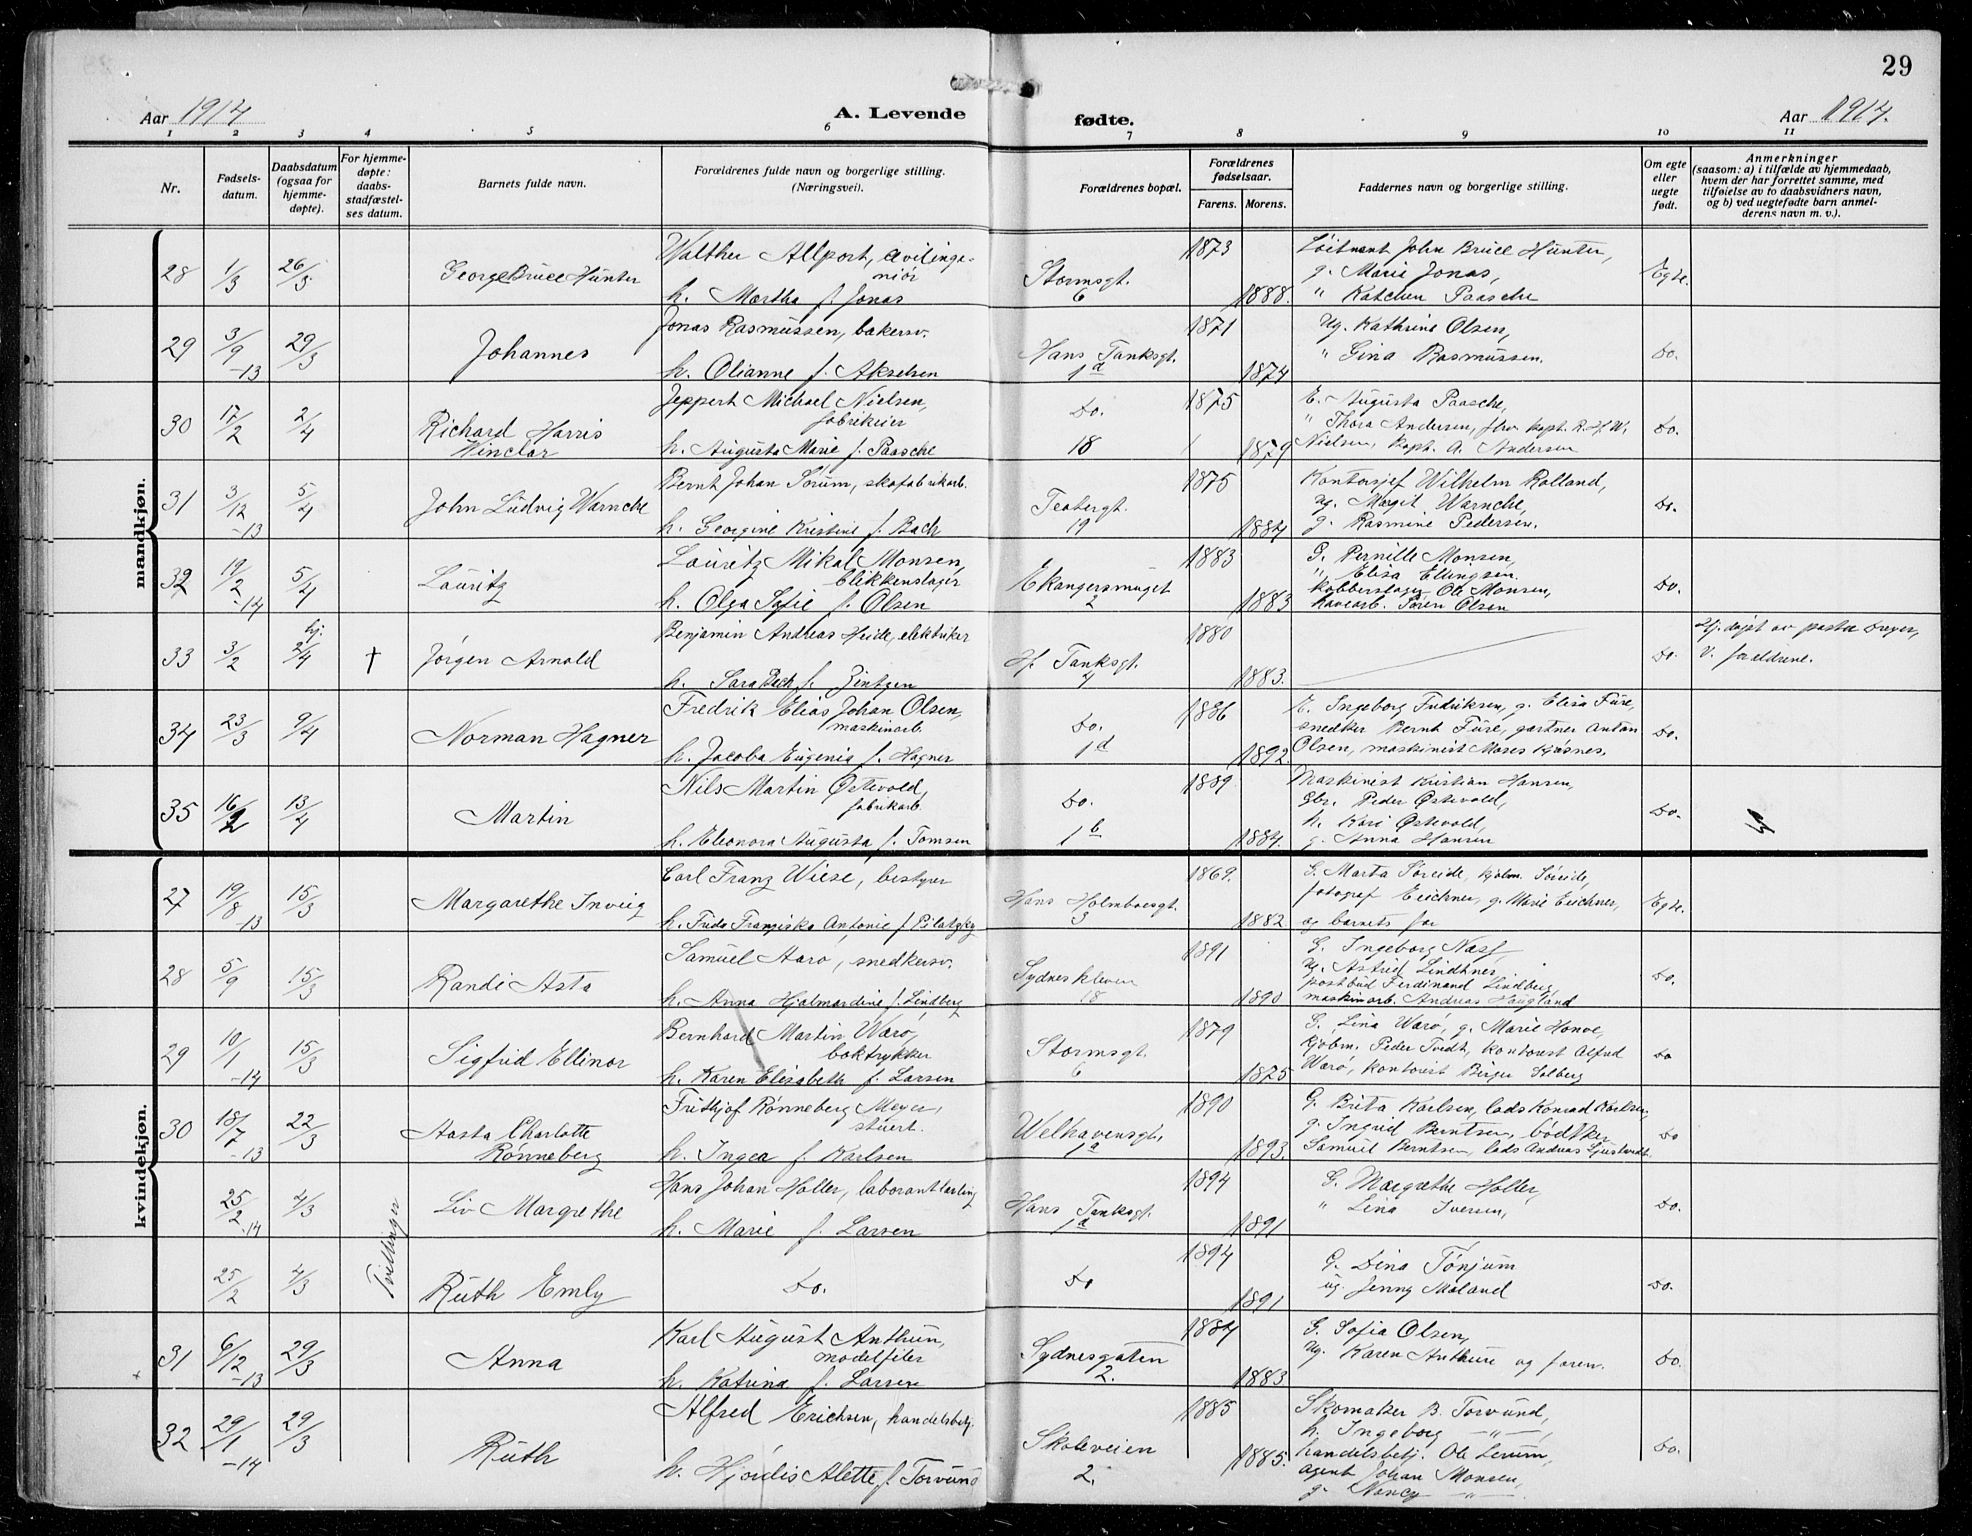 29
Aar 1914
A. Levende
fødte.
Aar 1914.
1 2 3 4 5 6 7 8 9 10 11
Nr.
Fødsels-
datum.
Daabsdatum
(ogsaa for
hjemme-
døpte).
For hjemme-
døpte:
daabs-
stadfæstel-
ses datum.
Barnets fulde navn.
Forældrenes fulde navn og borgerlige stilling.
(Næringsvei).
Forældrenes bopæl.
Forældrenes
fødselsaar.
Farens. Morens.
Faddernes navn og borgerlige stilling.
Om egte
eller
uegte
født.
Anmerkninger
(saasom: a) i tilfælde av hjemmedaab,
hvem der har forrettet samme, med
tilføielse av to daabsvidners navn,
og b) ved uegtefødte barn anmel-
derens navn m. v.).
mandkjøn.
28 1/3 26/3 George Bruce Hunter
Walther Allport, civilinge-
niør
h. Martha f. Jonas
Stormsgt.
6
1873
1888.
Løitnant John Bruce Hunter,
g. Marie Jonas,
" Katchen Paasche
Egte.
29 3/9 -13 29/3 Johannes
Jonas Rasmussen, bakersv.
h. Olianne f. Akselsen
Hans Tanksgt.
1d
1871
1874
Ug. Kathrine Olsen,
" Gina Rasmussen.
Do.
30 17/2 2/4 Richard Harris
Winclar
Jeppert Michael Nielsen,
fabrikeier
h. Augusta Marie f. Paasche
Do.
18
1875
1879
E. Augusta Paasche,
" Thora Andersen, fhv. kapt. R. Hf. W.
Nielsen, kapt. A. Andersen
Do.
31 3/12 -13 5/4 John Ludvig Warncke
Bernt Johan Sørum, skofabrikarb.
h. Georgine Kristine f. Bach
Teatergt.
19
1875
1884
Kontorsjef Wilhelm Rolland,
ug. Margit Warncke,
g. Rasmine Pedersen.
Do.
32 19/2 -14 5/4 Lauritz
Lauritz Mikal Monsen,
blikkenslager
h. Olga Sofie f. Olsen
Ekangersmuget
2
1883
1883
G. Pernille Monsen,
" Elisa Ellingsen.
kobberslager Ole Monsen,
havearb. Søren Olsen
Do.
33 3/2 hj. 3/4 † Jørgen Arnold
Benjamin Andreas Heide, elektriker
h. Sara Bach f. Zintzen
H. Tanksgt.
4
1880
1883.
Do.
Hj. døpt av pastor Dreyer,
v. forældrene.
34 23/3 9/4 Norman Hagner
Fredrik Elias Johan Olsen,
maskinarb.
h. Jacoba Eugenia f. Hagner
Do.
1d
1886
1892.
E. Ingeborg Fredriksen, g. Elisa Fure,
snedker Bernt Fure, gartner Anton
Olsen, maskinist Moses Kjosnes.
Do.
35 16/2 13/4 Martin
Nils Martin Østevold,
fabrikarb.
h. Eleonora Augusta f. Tomsen
Do.
1b
1889.
1884.
Maskinist Kristian Hansen,
Gbr. Peder Østevold,
h. Kari Østevold,
g. Anna Hansen
Do.
kvindekjøn.
27 19/8 -13 15/3 Margarethe Inveig
Carl Franz Wiese, bestyrer
h. Frida Franziska Antonie f. Pilatzky
Hans Holmboesgt.
3
1869.
1882
G. Marta Søreide, kjøbm. Søreide,
fotograf Eichner, g. Marie Eichner,
og barnets far
Egte.
28 5/9 15/3 Randi Asta
Samuel Aarø, snedkersv.
h. Anna Hjalmardine f. Lindberg
Sydneskleven
18
1891
1890
G. Ingeborg Næss,
ug. Astrid Lindtner,
postbud Ferdinand Lindberg,
maskinarb. Andreas Haugland
Do.
29 10/1 -14 15/3 Sigfrid Ellinor
Bernhard Martin Warø,
boktrykker
h. Karen Elisabeth f. Larsen
Stormsgt.
6
1879
1875
G. Lina Warø, g. Marie Honve,
kjøbm. Peder Tvedt, kontorist Alfred
Warø, kontorist Birger Solberg
Do
30 18/7 -13 22/3 Aasta Charlotte
Rønneberg
Frithjof Rønneberg Meyer,
stuert.
h. Ingea f. Karlsen
Welhavensgt.
1a
1890
1893.
G. Brita Karlsen, lads Konrad Karlsen,
g. Ingrid Berntsen, bødtker
Samuel Berntsen, lads Andreas
Do
25/2 -14 4/3 Tvillinger Liv Margrethe
Hans Johan Holler, laborantlærling
h. Marie f. Larsen
Hans Tanksgt.
1d
1894
1891
G. Margrethe Holler,
" Lina Iversen,
Do.
25/2 4/3 Ruth Emly
Do.
Do
1894
1891
G. Dina Tønjum
ug. Jenny Moland
Do.
31 6/12 -13 29/3 Anna
Karl August Anthun,
modelfiler
h. Katrina f. Larsen
Sydnesgaten
2.
1884
1883
G. Sofia Olsen,
Ug. Karen Anthun og faren.
Do.
32 29/1 -14 29/3 Ruth
Alfred Erichsen, handelsbetj.
h. Hjørdis Alette f. Torvund
Skoleveien
2.
1885
1885.
Skomaker B. Torvund,
h. Ingeborg —"—,
handelsbetj. Ole Lerum,
agent Johan Monsen,
g. Nancy —"—
Do.